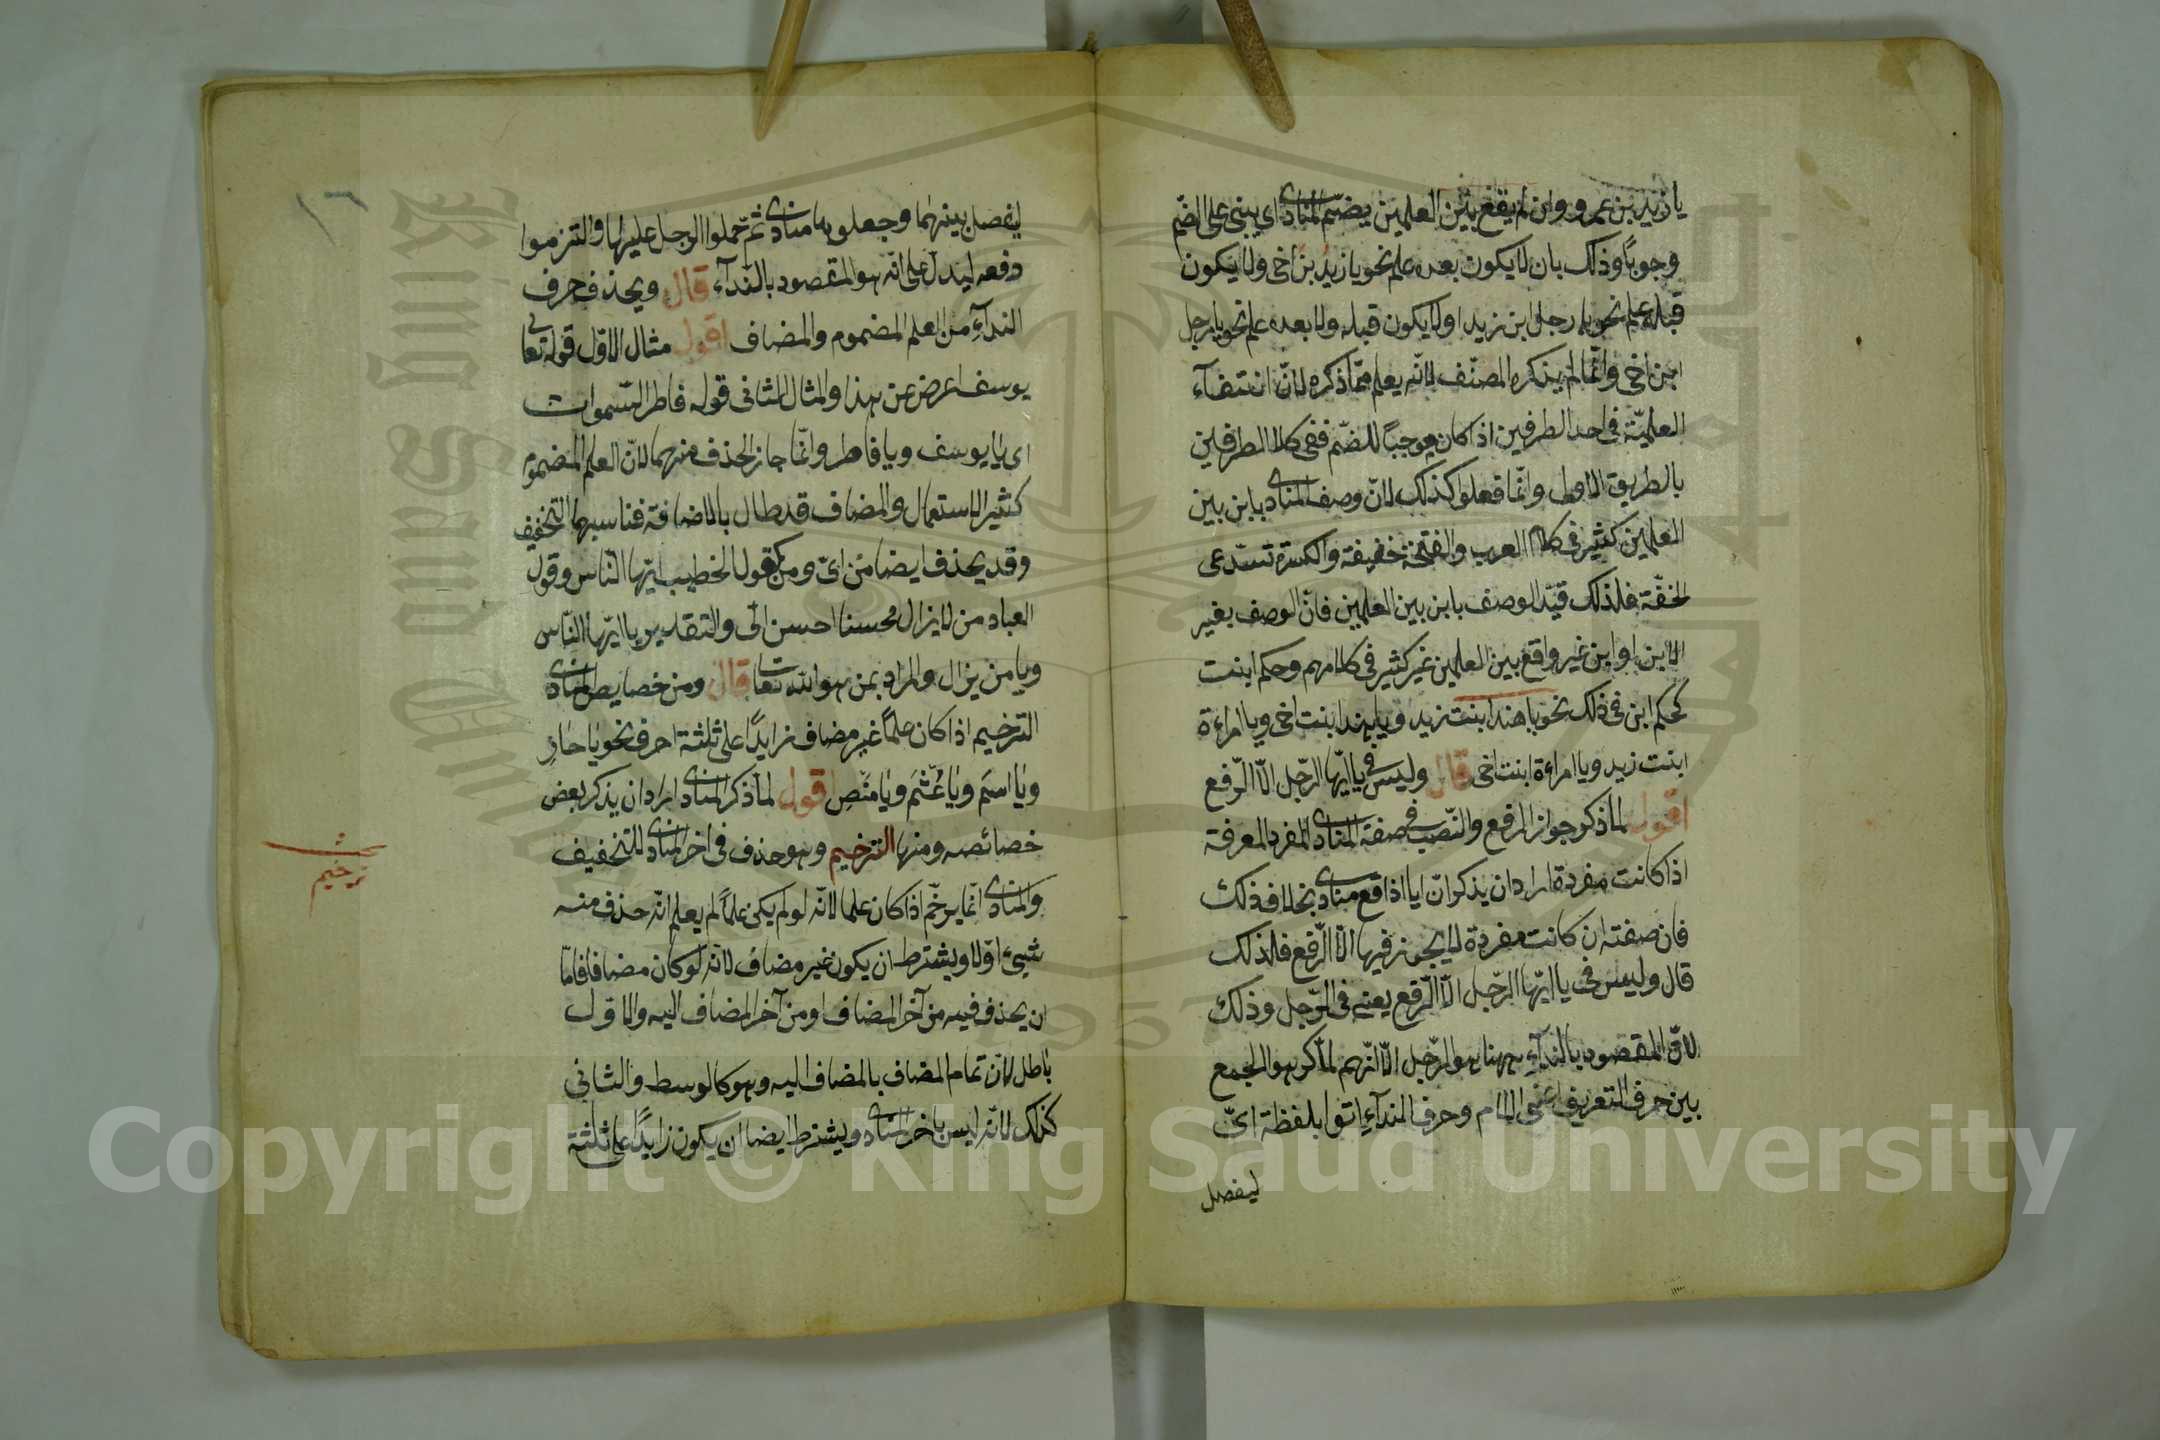 يا زيد بن عمرو وان لم يقع بين العلمين يضم المنادى اى يبنى على الضم
وجوبًا وذلك بان لا يكون بعده علم نحو يا زيد بن اخى ولا يكون
قبله علم نحو يا رجل ابن زيد او لا يكون قبله ولا بعده علم نحو يا رجل
ابن اخى وانّما لم يذكره المصنّف لانّه يعلم ممّا ذكره لانّ انتفاء
العلميّة فى احد الطرفين اذا كان موجبًا للضّم ففى كلا الطرفين
بالطريق الاولى وانّما فعلوا كذلك لانّ وصف المنادى بابن بين
العلمين كثير فى كلام العرب والفتحة خفيفة والكسرة تستدعى
الخفّة فلذلك قيّد الوصف بابن بين العلمين فانّ الوصف بغير
الابن او ابن غير واقع بين العلمين غير كثير فى كلامهم وحكم ابنت
كحكم ابن فى ذلك نحو يا هند ابنت زيد ويا هند ابنت اخى ويا امراءة
ابنت زيد ويا امراءة ابنت اخى قال وليس فى يا ايّها الرّجل الّا الرّفع
اقول لما ذكر جواز الرفع والنّصب فى صفة المنادى المفرد المعرفة
اذا كانت مفردة اراد ان يذكر انّ ايا اذا وقع منادى بخلاف ذلك
فان صفته ان كانت مفردة لا يجوز فيها الّا الرّفع فلذلك
قال وليس فى يا ايّها الرّجل الّا الرّفع يعنى فى الرّجل وذلك
لانّ المقصود بالنداء ههنا هو الرّجل الّا انّهم لمّا كرهوا الجمع
بين حرف التعريف اعنى اللام وحرف النداء اتوا بلفظة اىّ
ليفصل
١٦
ليفصل بينهما وجعلوها منادى ثم حملوا الرجل عليها والتزموا
رفعه ليدل على انّه هو المقصود بالنّداء قال ويحذف حرف
النداء من العلم المضموم والمضاف اقول مثال الاوّل قوله تعالى
يوسف اعرض عن هذا والمثال الثانى قوله فاطر السّموات
اى يا يوسف ويا فاطر وانّما جاز الحذف منهما لانّ العلم المضموم
كثير الاستعمال والمضاف قد طال بالاضافة فناسبهما التخفيف
وقد يحذف ايضا من اىّ ومن كقول الخطيب ايّها النّاس وقول
العباد من لا يزال محسنا احسن الىّ والتقدير يا ايّها النّاس
ويا من يزال والمراد بمن هو الله تعالى قال ومن خصايص المنادى
الترخيم اذا كان علمًا غير مضاف زايدًا على ثلثة احرف نحو يا حارِ
ويا اسمَ ويا عُثمَ ويا منصِ اقول لما ذكر المنادى اراد ان يذكر بعض
خصائصه ومنها الترخيم وهو حذف فى اخر المنادى للتخفيف
والمنادى انّما يرخّم اذا كان علما لانّه لو لم يكن علمًا لم يعلم انّه حذف منه
شيئ اوّلا ويشترط ان يكون غير مضاف لانّه لو كان مضافا فامّا
ان يحذف فيه من آخر المضاف او من آخر المضاف اليه والاوّل
باطل لانّ تمام المضاف بالمضاف اليه وهو كالوسط والثانى
كذلك لانّه ليس باخر المنادى ويشترط ايضا ان يكون زايدًا على ثلثة
بحث
ترخيم
Copyright © King Saud University
King Saud University
1957